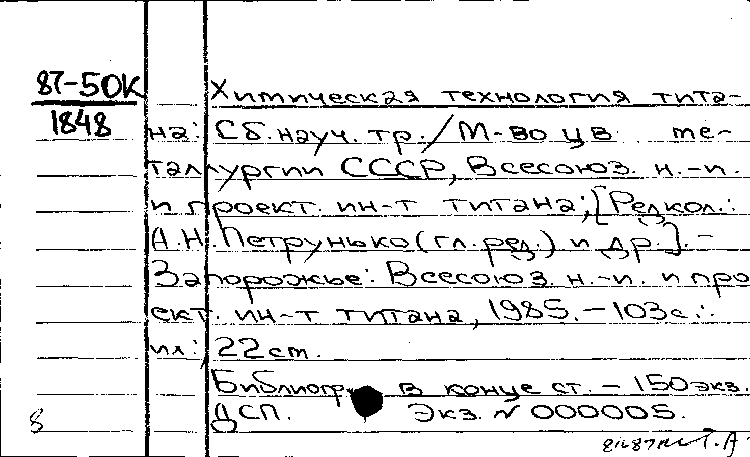 87-50К
1848
Химическая технология тита-
на: Сб. науч. тр. / М-во цв. ме-
таллургии СССР, Всесоюз. н.-и.
и проект. ин-т титана; [Редкол.:
А.Н. Петрунько (гл. ред.) и др.]. -
Запорожье: Всесоюз. н.-и. и про
ект. ин-т титана, 1985. - 103 с.:
ил.; 22 см.
Библиогр. в конце ст. - 150 экз.
ДСП. Экз. № 000005.
8